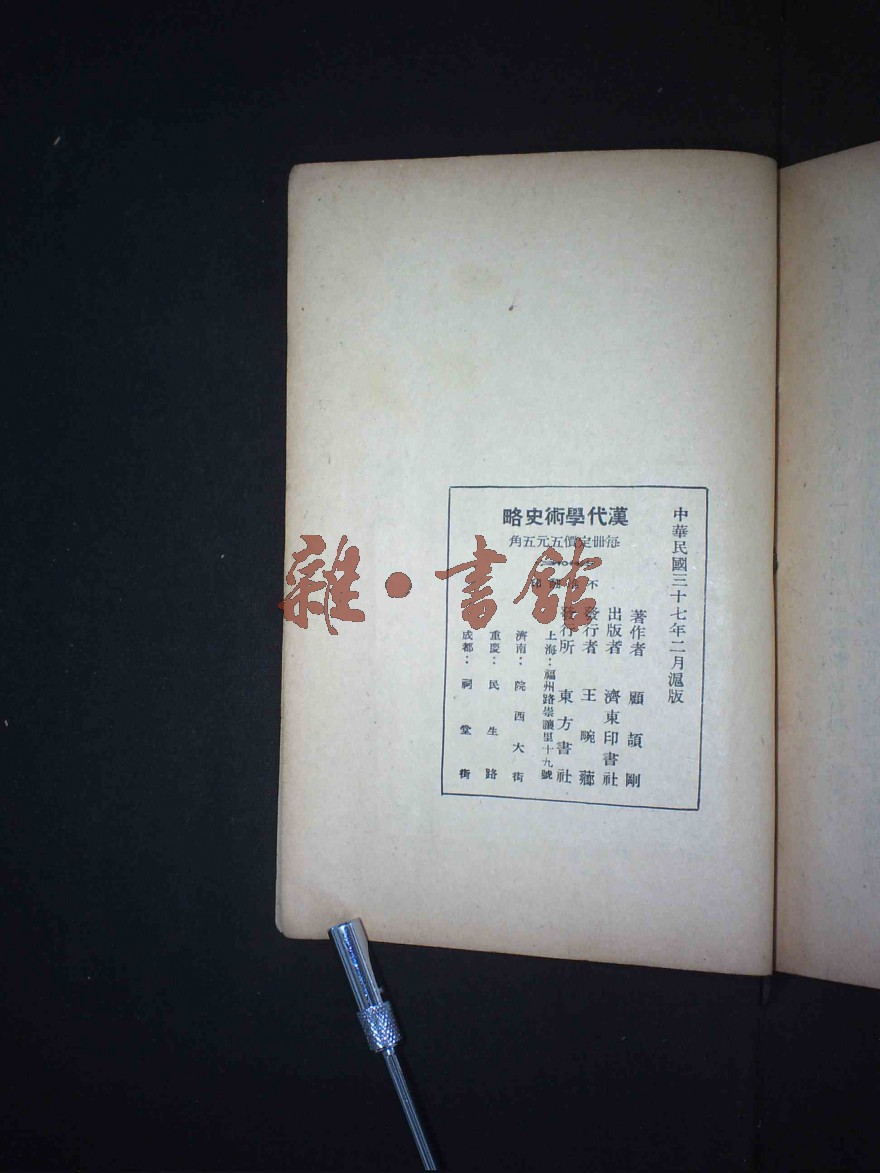 中華民國三十七年二月滬版
漢代學術史略
每冊定價五元五角
著作者 顧頡剛
出版者 濟東印書社
發行者 王畹薌
發行所 東方書社
上海：福州路崇讓里十九號
濟南：院西大街
重慶：民生路
成都：祠堂街
雜·書館